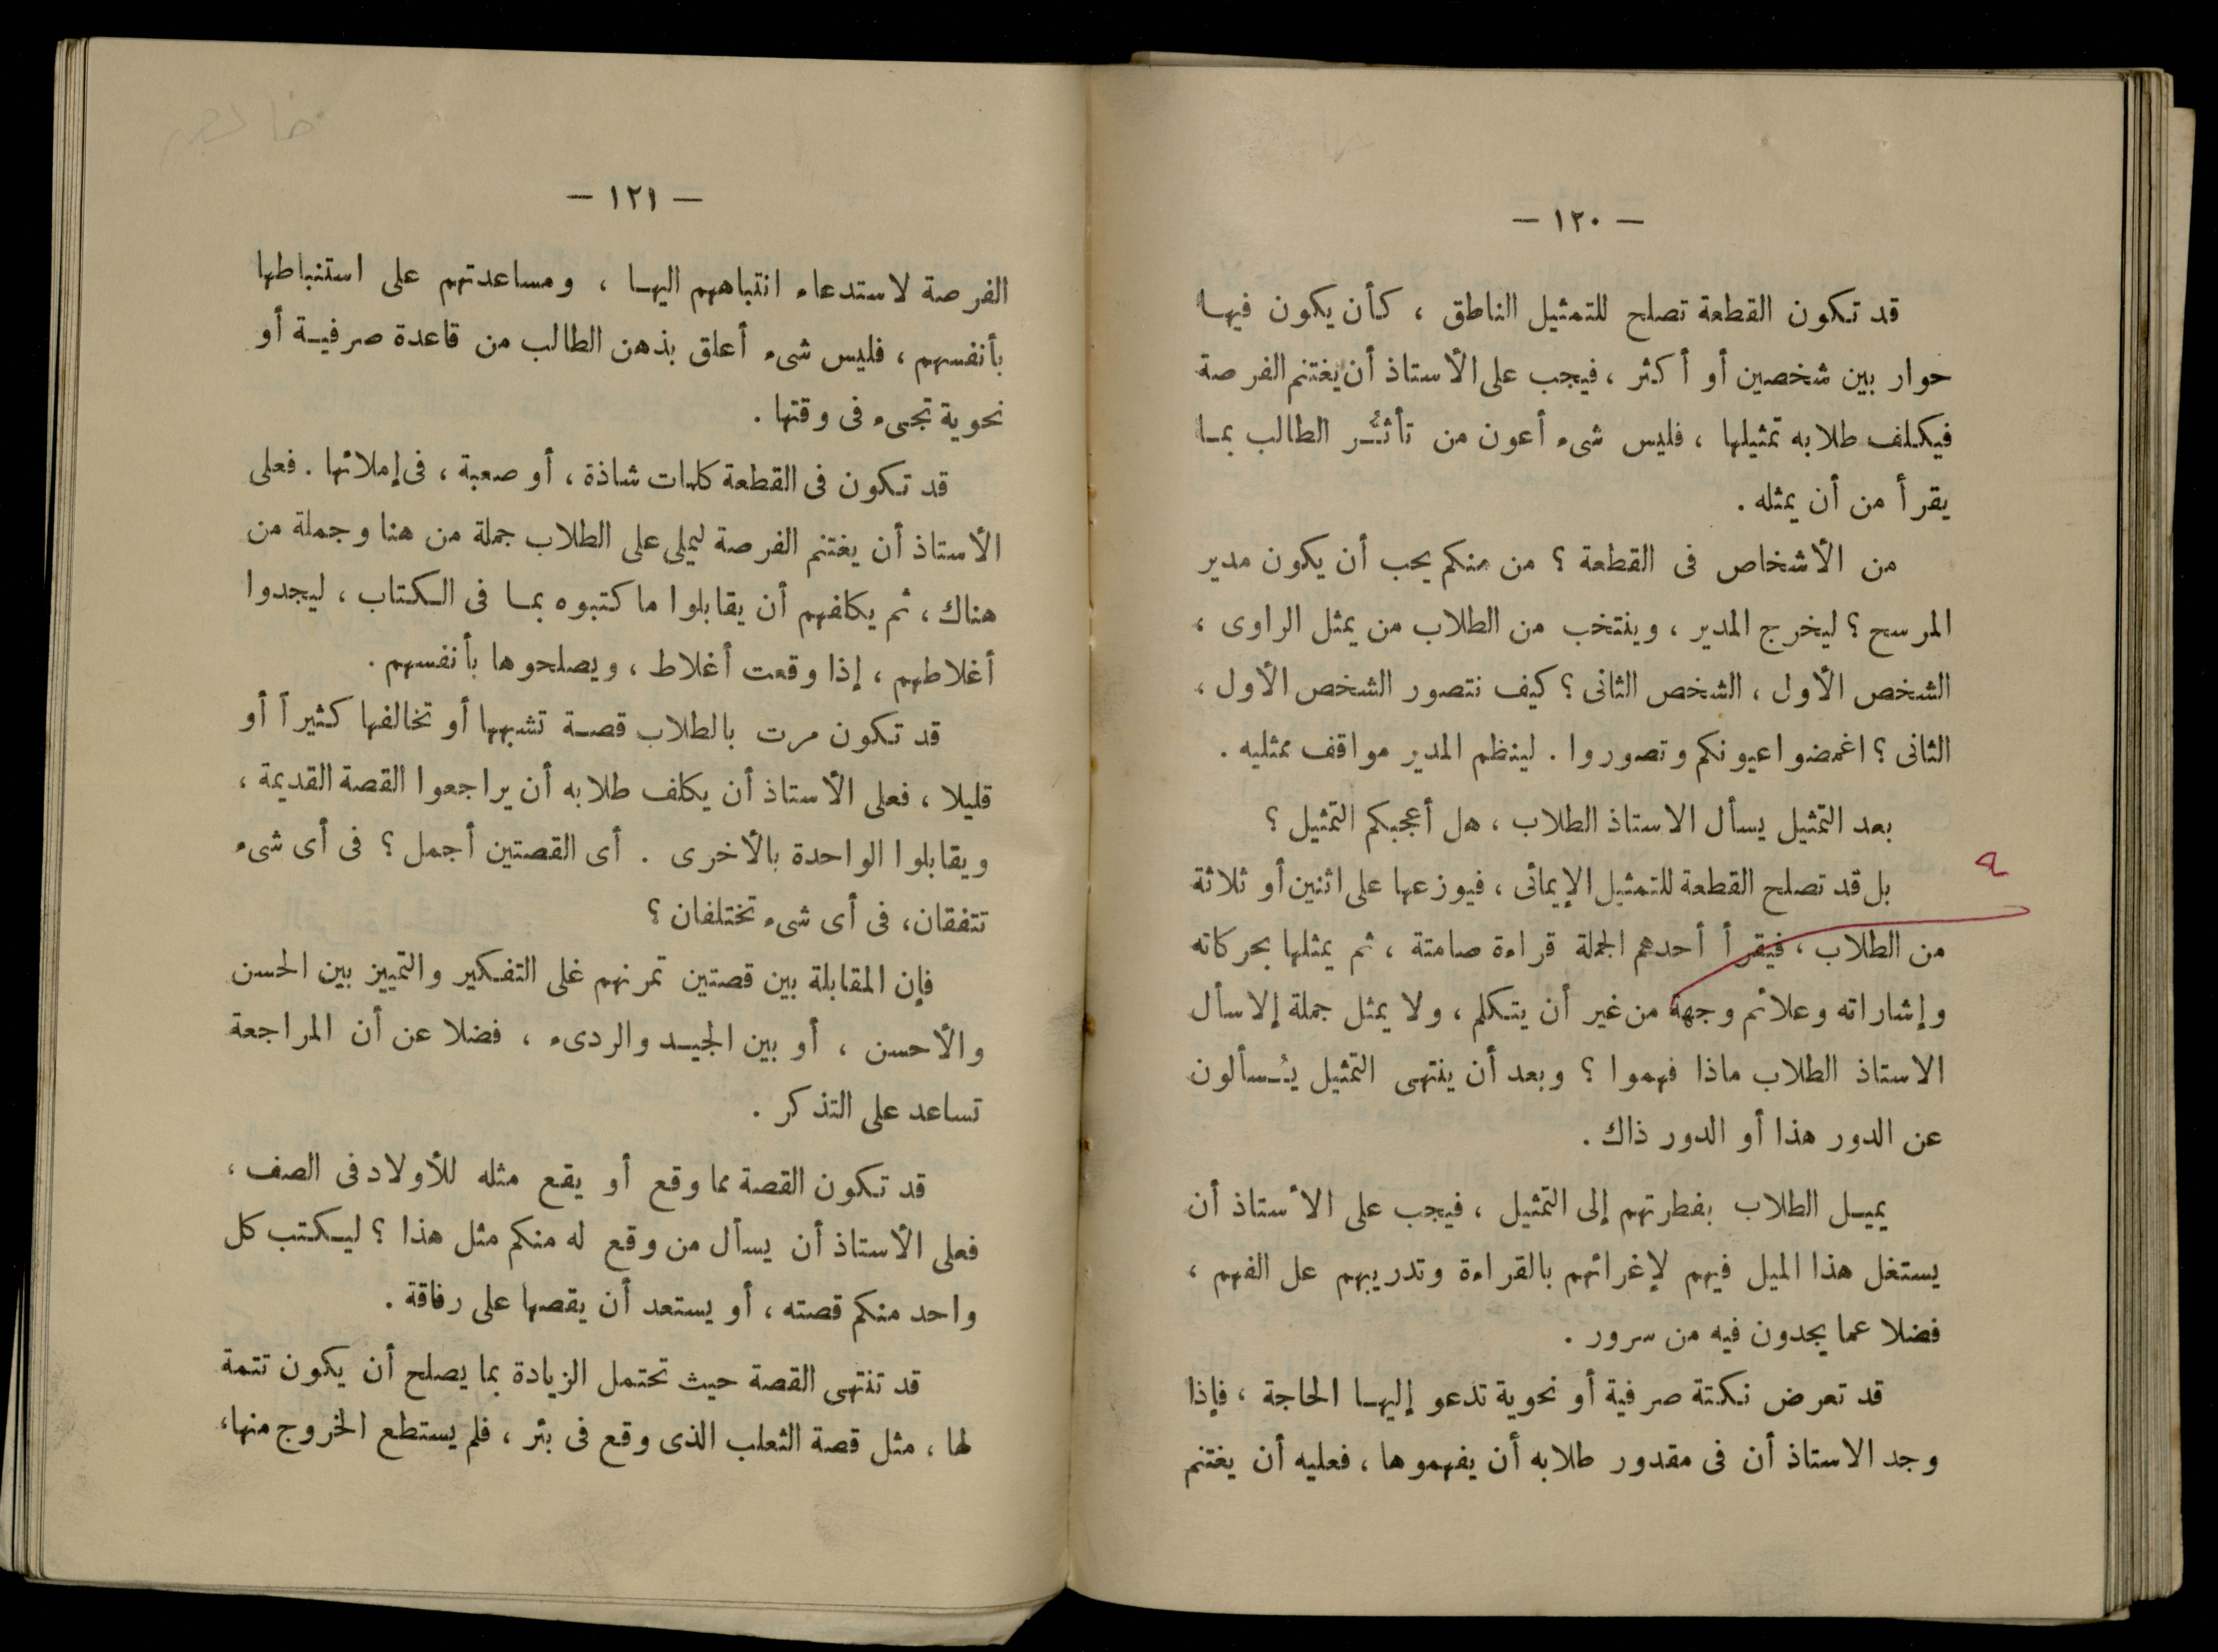 — ١٢٠ —
قد تكون القطعة تصلح للتمثيل الناطق ، كأن يكون فيها
حوار بين شخصين أو أكثر ، فيجب على الأستاذ أن يغتنم الفرصة
فيكلف طلابه تمثيلها ، فليس شىء أعون من تأثُّر الطالب بما
يقرأ من أن يمثله .
من الأشخاص فى القطعة ؟ من منكم يحب أن يكون مدير
المرسح ؟ ليخرج المدير ، وينتخب من الطلاب من يمثل الراوى ،
الشخص الأول ، الشخص الثانى ؟ كيف نتصور الشخص الأول ،
الثانى ؟ اغمضوا عيونكم وتصوروا . لينظم المدير مواقف ممثليه .
بعد التمثيل يسأل الاستاذ الطلاب ، هل أعجبكم التمثيل ؟
بل قد تصلح القطعة للتمثيل الإيمائى ، فيوزعها على اثنين أو ثلاثة
من الطلاب ، فيقرأ أحدهم الجملة قراءة صامتة ، ثم يمثلها بحركاته
وإشاراته وعلائم وجهة من غير أن يتكلم ، ولا يمثل جملة إلا سأل
الاستاذ الطلاب ماذا فهموا ؟ وبعد أن ينتهى التمثيل يُسألون
عن الدور هذا أو الدور ذاك .
يميل الطلاب بفطرتهم إلى التمثيل ، فيجب على الأستاذ أن
يستغل هذا الميل فيهم لإغرائهم بالقراءة وتدريبهم عل الفهم ،
فضلا عما يجدون فيه من سرور .
قد تعرض نكتة صرفية أو نحوية تدعو إليها الحاجة ، فإذا
وجد الاستاذ أن فى مقدور طلابه أن يفهموها ، فعليه أن يغتنم
— ١٢١ —
الفرصة لاستدعاء انتباههم اليها ، ومساعدتهم على استنباطها
بأنفسهم ، فليس شىء أعلق بذهن الطالب من قاعدة صرفية أو
نحوية تجىء فى وقتها .
قد تكون فى القطعة كلمات شاذة ، أو صعبة ، فى إملائها . فعلى
الأستاذ أن يغتنم الفرصة ليملى على الطلاب جملة من هنا وجملة من
هناك ، ثم يكلفهم أن يقابلوا ما كتبوه بما فى الكتاب ، ليجدوا
أغلاطهم ، إذا وقعت أغلاط ، ويصلحوها بأنفسهم .
قد تكون مرت بالطلاب قصة تشبهها أو تخالفها كثيراً أو
قليلا ، فعلى الأستاذ أن يكلف طلابه أن يراجعوا القصة القديمة ،
ويقابلوا الواحدة بالأخرى . أى القصتين أجمل ؟ فى أى شىء
تتفقان، فى أى شىء تختلفان ؟
فإن المقابلة بين قصتين تمرنهم غلى التفكير والتمييز بين الحسن
والأحسن ، أو بين الجيد والردىء ، فضلا عن أن المراجعة
تساعد على التذكر .
قد تكون القصة مما وقع أو يقع مثله للأولاد فى الصف ،
فعلى الأستاذ أن يسأل من وقع له منكم مثل هذا ؟ ليكتب كل
واحد منكم قصته ، أو يستعد أن يقصها على رفاقة .
قد تنتهى القصة حيث تحتمل الزيادة بما يصلح أن يكون تتمة
لها ، مثل قصة الثعلب الذى وقع فى بئر ، فلم يستطع الخروج منها،